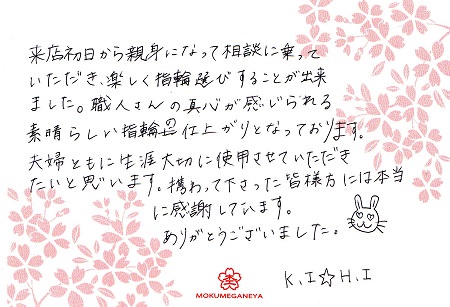 来店初日から親身になって相談に乗って
いただき、楽しく指輪選びすることが出来
ました。職人さんの真心が感じられる
素晴らしい指輪の仕上がりとなっております。
夫婦ともに生涯大切に使用させていただき
たいと思います。携わって下さった皆様方には本当
に感謝しています。
ありがとうございました。
K.I☆H.I
MOKUMEGANEYA